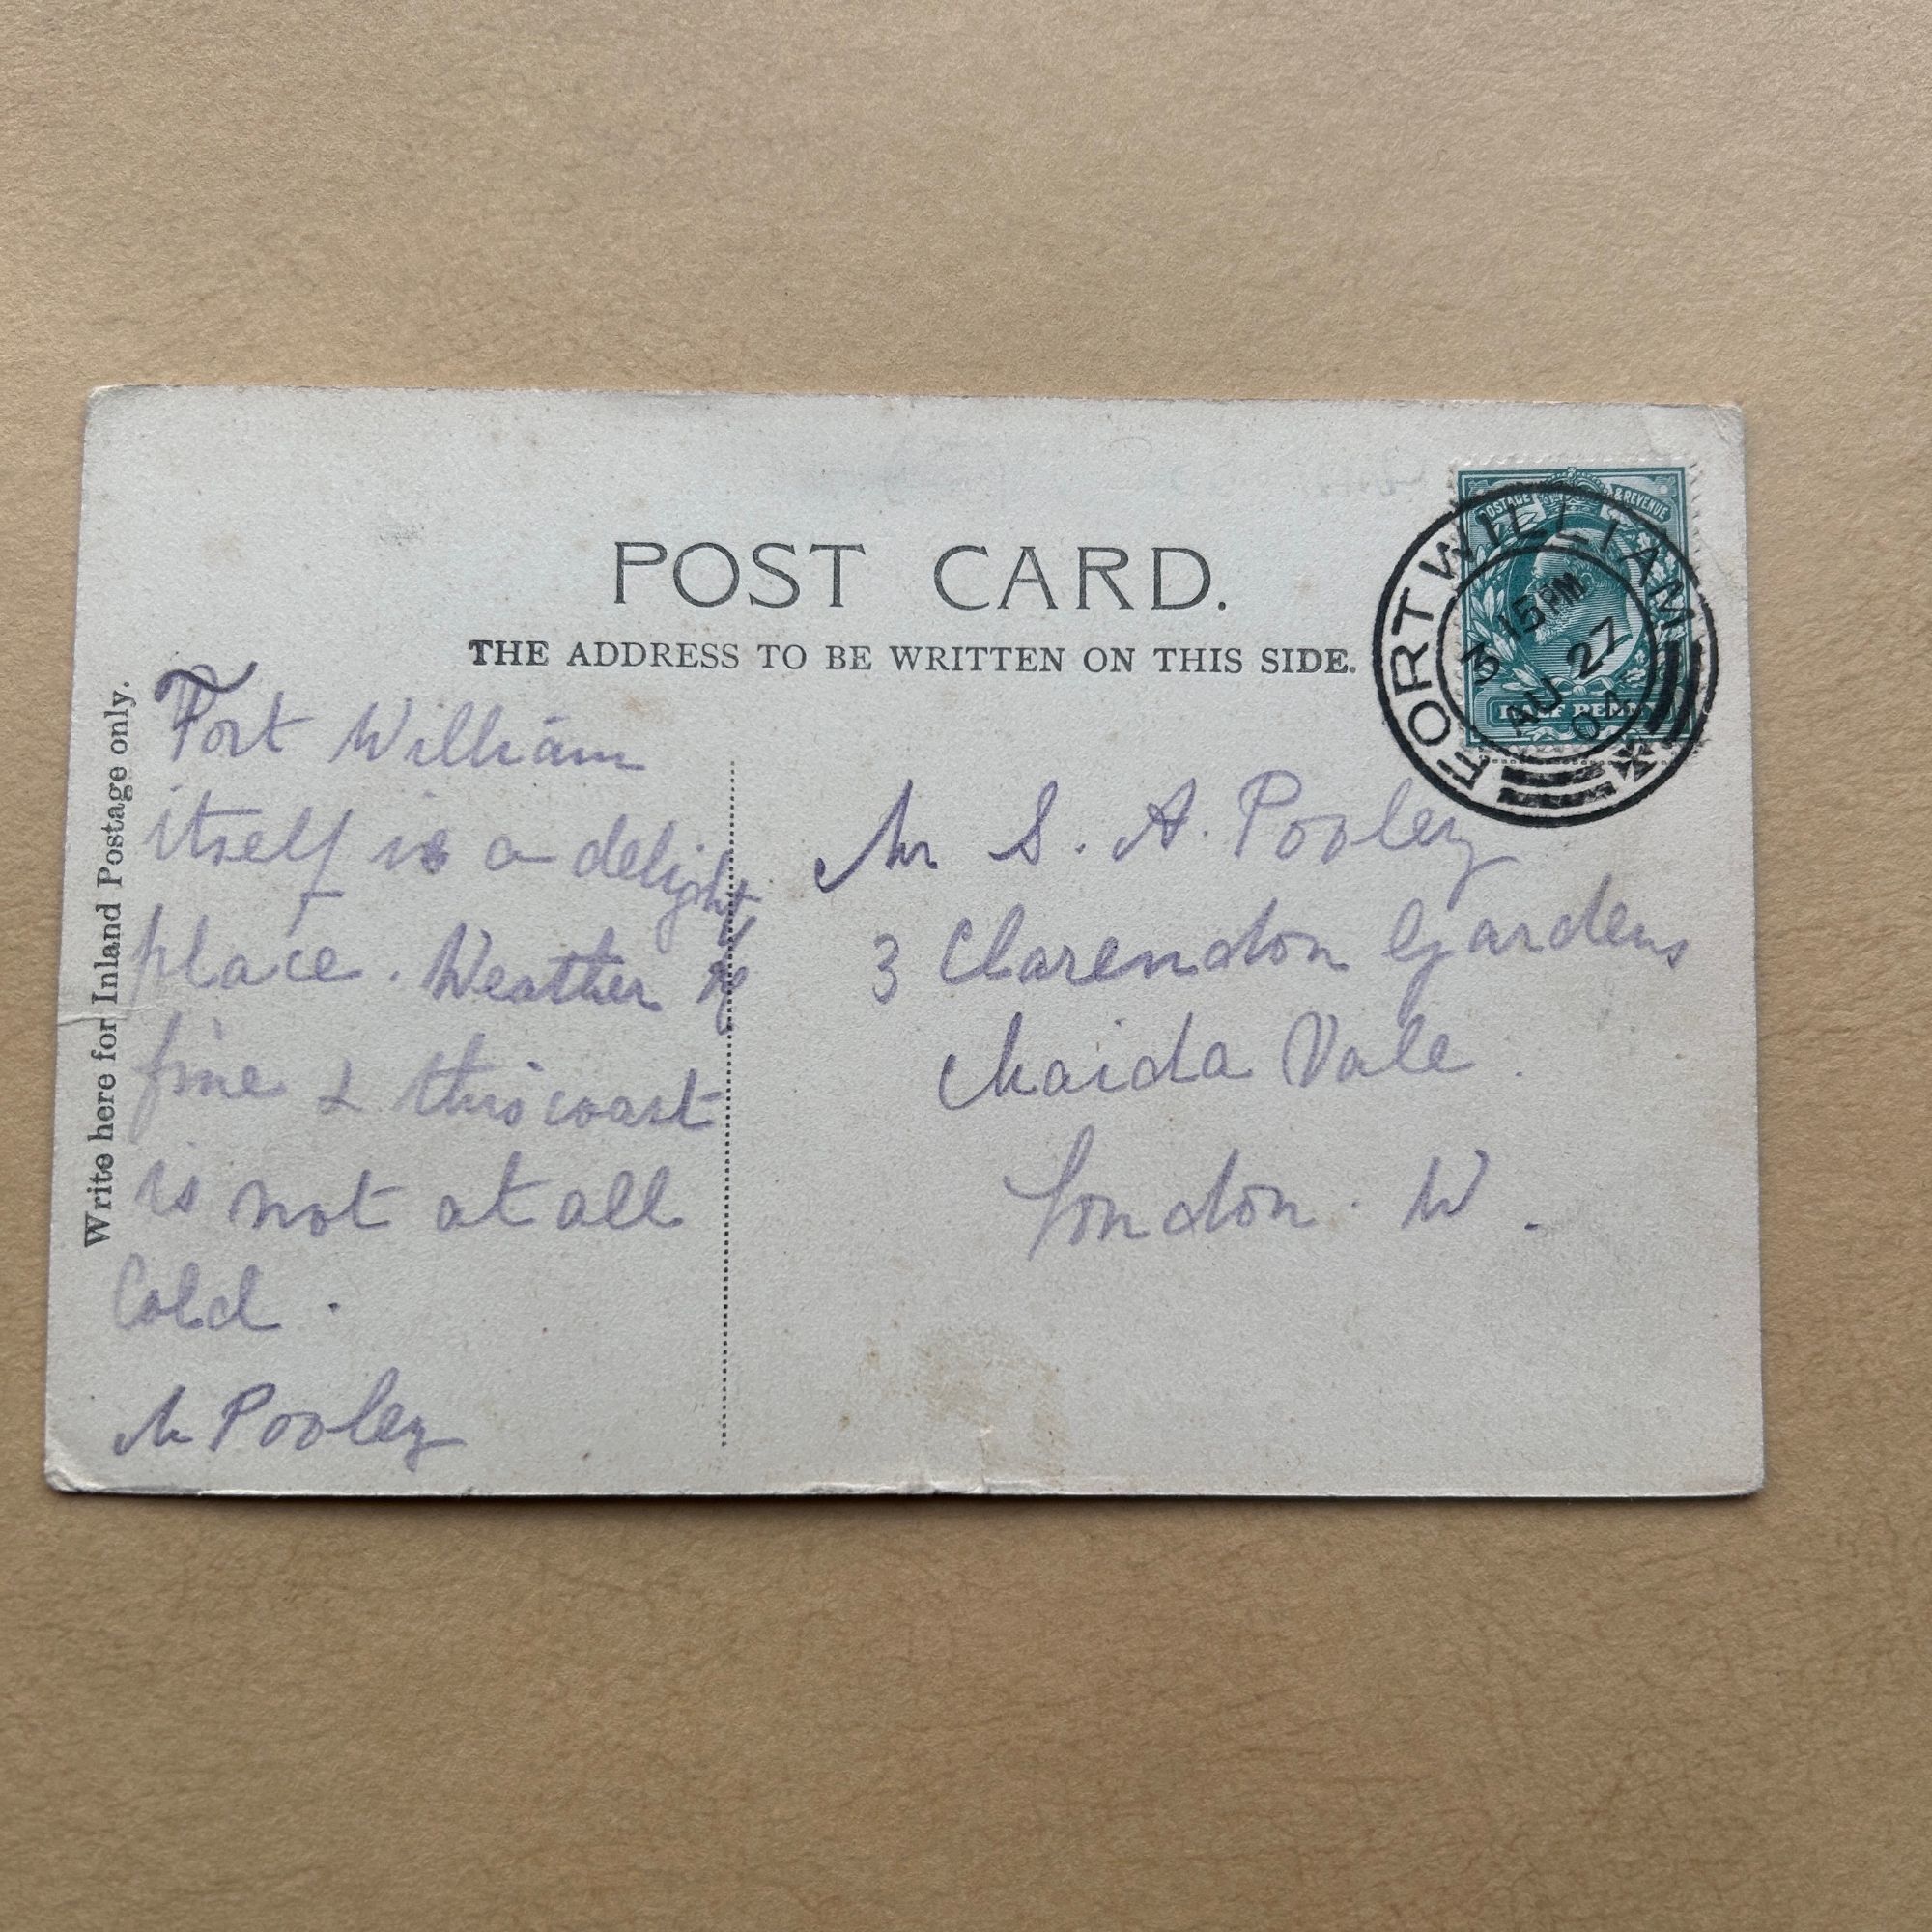 POST CARD.
THE ADDRESS TO BE WRITTEN ON THIS SIDE.
Write here for Inland Postage only.
Fort William
itself is a delight
place. Weather
fine & this coast
is not at all
Cold.
M Pooley
POSTAGE & REVENUE
HALF PENNY
FORT WILLIAM
3 15 PM
AU 27
04
Mr S. A. Pooley
3 Clarendon Gardens
Maida Vale.
London. W.